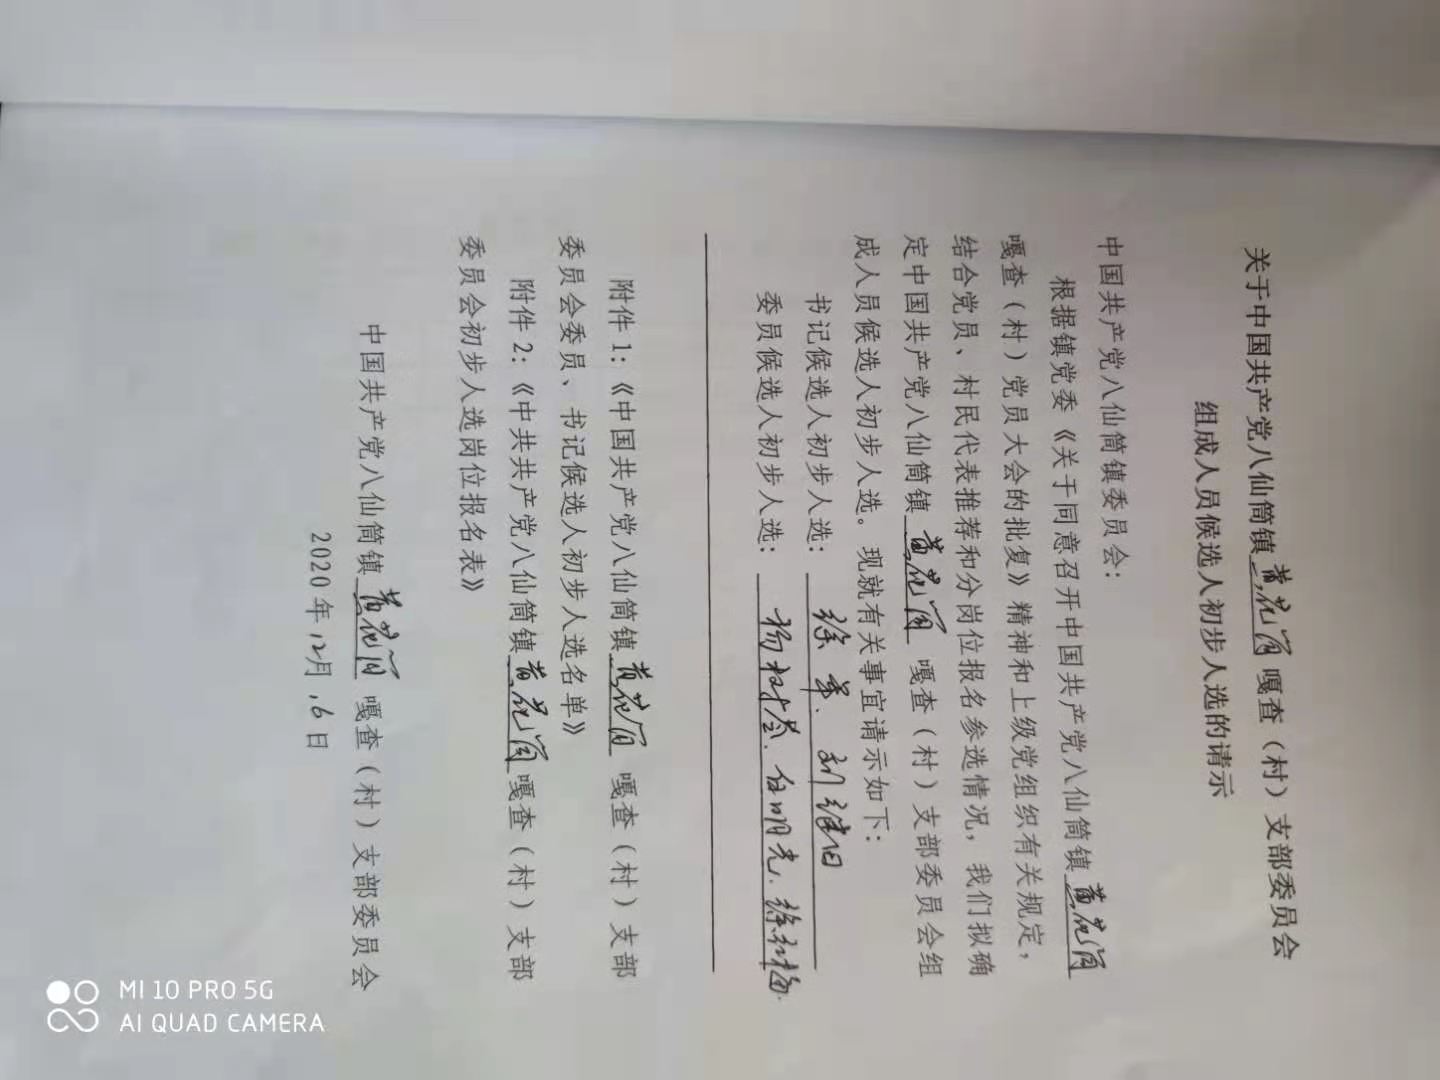 关于中国共产党八仙筒镇黄花筒嘎查（村）支部委员会
组成人员候选人初步人选的请示
中国共产党八仙筒镇委员会：
根据镇党委《关于同意召开中国共产党八仙筒镇黄花筒
嘎查（村）党员大会的批复》精神和上级党组织有关规定，
结合党员、村民代表推荐和分岗位报名参选情况，我们拟确
定中国共产党八仙筒镇黄花筒嘎查（村）支部委员会组
成人员候选人初步人选。现就有关事宜请示如下：
书记候选人初步人选：徐 、刘
委员候选人初步人选：杨树 、白明光、徐
附件1：《中国共产党八仙筒镇黄花筒嘎查（村）支部
委员会委员、书记候选人初步人选名单》
附件2：《中共共产党八仙筒镇黄花筒嘎查（村）支部
委员会初步人选岗位报名表》
中国共产党八仙筒镇黄花筒嘎查（村）支部委员会
2020年12月16日
MI 10 PRO 5G
AI QUAD CAMERA